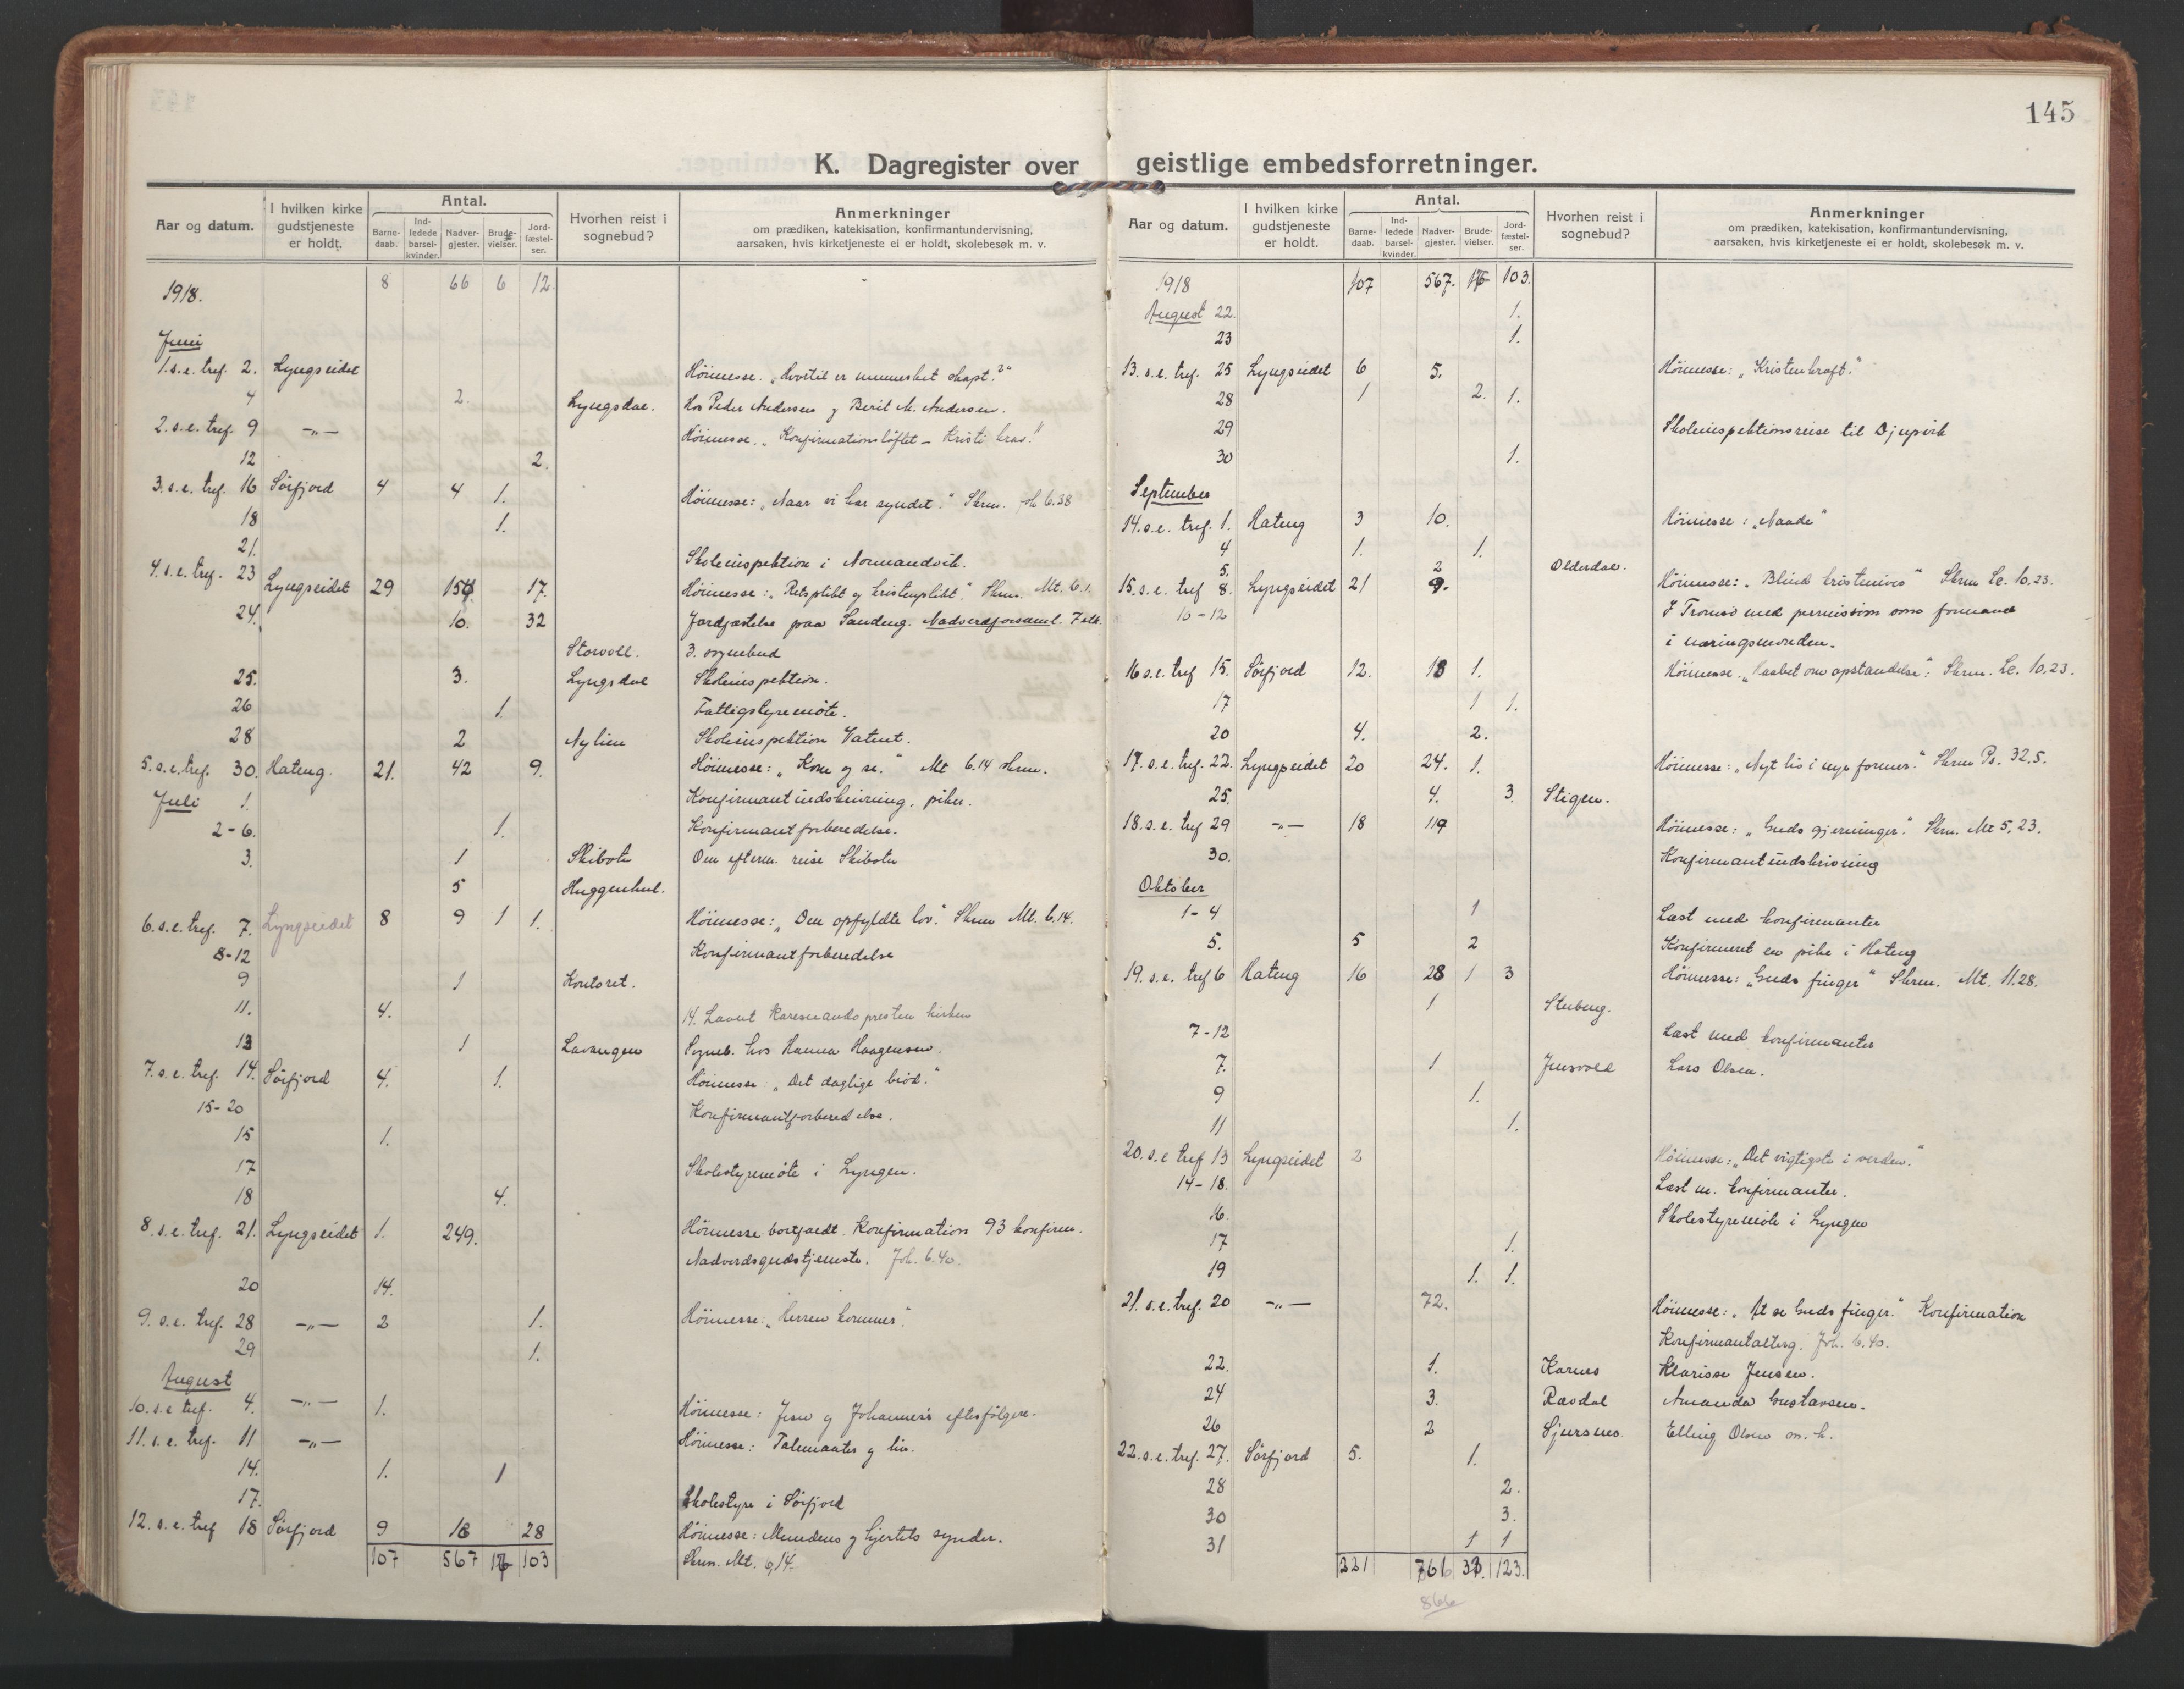 145
K. Dagregister over geistlige embedsforretninger.
Aar og datum.
I hvilken kirke gudstjeneste er holdt.
Antal.
Barne-daab.
Ind-ledede barsel-kvinder.
Nadver-gjester.
Brude-vielser.
Jord-fæstel-ser.
Hvorhen reist i sognebud?
Anmerkninger
om prædiken, katekisation, konfirmantundervisning,
aarsaken, hvis kirketjeneste ei er holdt, skolebesøk m. v.
1918. 8 66 6 12
Juni
1. s.e. tref. 2. Lyngseidet Höimesse. „Hvortil er mennesket skapt?"
4 2. Lyngsdal. Hos Peder Andersen og Berit M. Andersen.
2. s.e. tref. 9 -„- Höimesse. „Konfirmationslöftet - Kristi krav."
12 2.
3. s.e. tref. 16 Sörfjord 4 4 1. Höimesse: „Naar vi har syndet." Skrm. Joh 6.38
18 1.
21. Skoleinspektion i Normandvik.
4. s.e. tref. 23 Lyngseidet 29 154 17. Höimesse: „Retsplikt og kristenplikt." Skrm. Mt. 6.1.
24. 10. 32 Jordfæstelse paa Sandeng. Nadverdforsaml.
Storvoll. 3. sognebud
25. 3. Lyngsdal Skoleinspektion.
26 1. Fattigstyremöte.
28 2 Nylien Skoleinspektion Vatnet.
5. s.e. tref. 30. Hateng. 21. 42 9. Höimesse: „Kom og se." Mt 6.14 skrm.
Juli 1. Konfirmantindskrivning, piker.
2-6. 1. Konfirmantforberedelse.
3. 1 Skibotn Om efterm. reise Skibotn
5 Huggenhul.
6. s.e. tref. 7. Lyngseidet 8 9 1 1. Höimesse: „Den opfyldte lov." Skrm Mt. 6.14.
8-12 Konfirmantforberedelse
9 1 Kontoret.
11. 4. 14. Laant Karesuandopresten kirken
13 1 Lavangen Sogneb. hos Hanna Haagensen.
7. s.e. tref. 14. Sörfjord 4. 1. Höimesse „Det daglige bröd."
15-20 Konfirmantforberedelse.
15 1.
17 Skolestyremöte i Lyngen.
18 4.
8. s.e. tref. 21. Lyngseidet 1. 249. Höimesse bortfaldt. Konfirmation 93 konfirm.
Nadverdsgudstjeneste. Joh. 6.40.
20 14.
9. s.e. tref. 28 -„- 2 1. Höimesse: „Herren kommer".
29 1.
August
10. s.e tref. 4. -„- 1. Höimesse: Jesu og Johannes's efterfölgere.
11. s.e. tref. 11 -„- Höimesse: Talemaater og liv.
14. 1. 1
17. Skolestyre i Sörfjord
12. s.e. tref 18 Sörfjord 9 18 28 Höimesse: Mundens og hjertets synder.
107 567 16 103 Skrm. Mt. 6,14.
Aar og datum.
I hvilken kirke gudstjeneste er holdt.
Antal.
Barne-daab.
Ind-ledede barsel-kvinder.
Nadver-gjester.
Brude-vielser.
Jord-fæstel-ser.
Hvorhen reist i sognebud?
Anmerkninger
om prædiken, katekisation, konfirmantundervisning,
aarsaken, hvis kirketjeneste ei er holdt, skolebesøk m. v.
1918 107 567. 16 103.
August 22. 1.
23 1.
13. s.e. tref. 25 Lyngseidet 6 5. Höimesse: „Kristenkraft."
28 1 2. 1.
29 Skoleinspektionsreise til Djupvik
30 1.
September
14. s.e. tref. 1. Hateng 3 10. Höimesse: „Naade"
4 1. 1.
5. 2 Olderdal.
15. s.e. tref 8. Lyngseidet 21 9. Höimesse: „Blind kristenliv" Skrm Lc. 10.23.
10-12 I Tromsö med permission som formand
i næringsnevnden.
16 s.e. tref 15. Sörfjord 12. 18 1. Höimesse. „Haabet om opstandelse": Skrm. Lc. 10.23.
17 1 1.
20 4. 2.
17. s.e. tref. 22. Lyngseidet 20 24. 1. Höimesse: „Nyt liv i nye former." Skrm Ps. 32.5.
25. 4. 3. Stigen.
18. s.e. tref 29 -„- 18 119 Höimesse: „Guds gjerninger." Skrm. Mt 5,23.
30. Konfirmantindskrivning
Oktober
1-4 1 Læst med konfirmanter
5. 5 2 Konfirmert en pike i Hateng
19. s.e. tref 6 Hateng 16 28 1 3 Höimesse: „Guds finger" Skrm. Mt. 11.28.
1 Stubeng.
7-12 Læst med konfirmanter
7. 1 Jensvold Lars Olsen.
9 1.
11 1.
20. s.e tref 13 Lyngseidet 2 Höimesse: „Det vigtigste i verden."
14-18. Læst m. konfirmanter.
16. Skolestyremöte i Lyngen
17 1.
19 1. 1.
21. s.e. tref. 20 -„- 72. Höimesse: „At se Guds finger." Konfirmation
Konfirmantalterg. Joh. 6.40.
22. 1. Karnes Klarisse Jensen.
24 3. Rævdal Amanda Gustavsen.
26 2 Sjursnes. Elling Olsen m. h.
22. s.e. tref. 27. Sörfjord 5. 1.
28 2.
30 3.
31 1 1
221 761 33. 123.
866